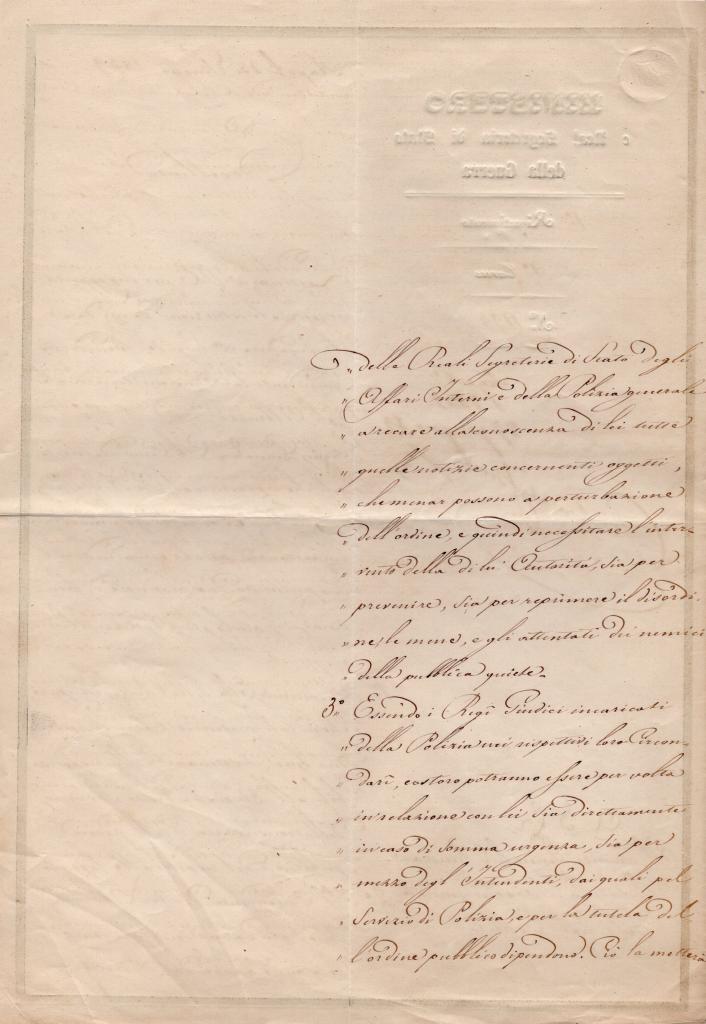 " delle Reali Segreterie di Stato degli
" Affari Interni e della Polizia generale
" a recare alla conoscenza di lei tutte
" quelle notizie concernenti oggetti,
" che menar possono a perturbazione
" dell'ordine, e quindi necessitare l'inter-
" vento della di lei Autorità, sia per
" prevenire, sia per reprimere il disordi-
" ne, le mene, e gli attentati dei nemici
" della pubblica quiete.
3° " Essendo i Regî Giudici incaricati
" della Polizia nei rispettivi loro Circon-
" darî, costoro potranno essere per volta
" in relazione con lei sia direttamente
" in caso di somma urgenza, sia per
" mezzo degl'Intendenti, dai quali pel
" servizio di Polizia, e per la tutela del
" l'ordine pubblico dipendono. Ciò la metterà
MINISTERO
e Real Segreteria di Stato
della Guerra
Ripartimento
Carico
N.°